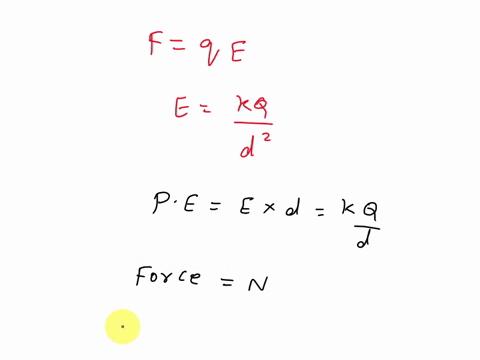 F = q E
E = kQ / d²
P.E = E × d = k Q / d
Force = N